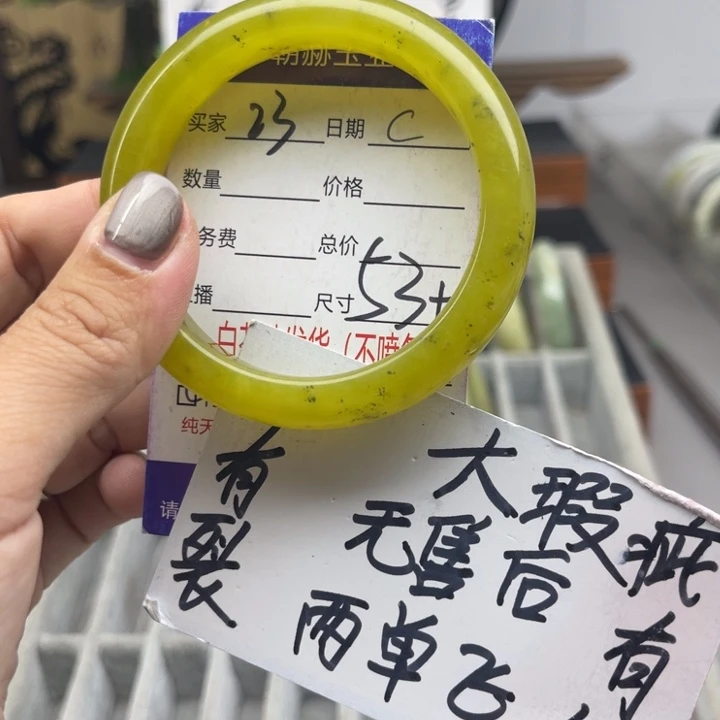 买家 23 日期 C
数量 价格
务费 总价
播 尺寸 53+
有裂
大瑕疵
无售后 有
两单飞